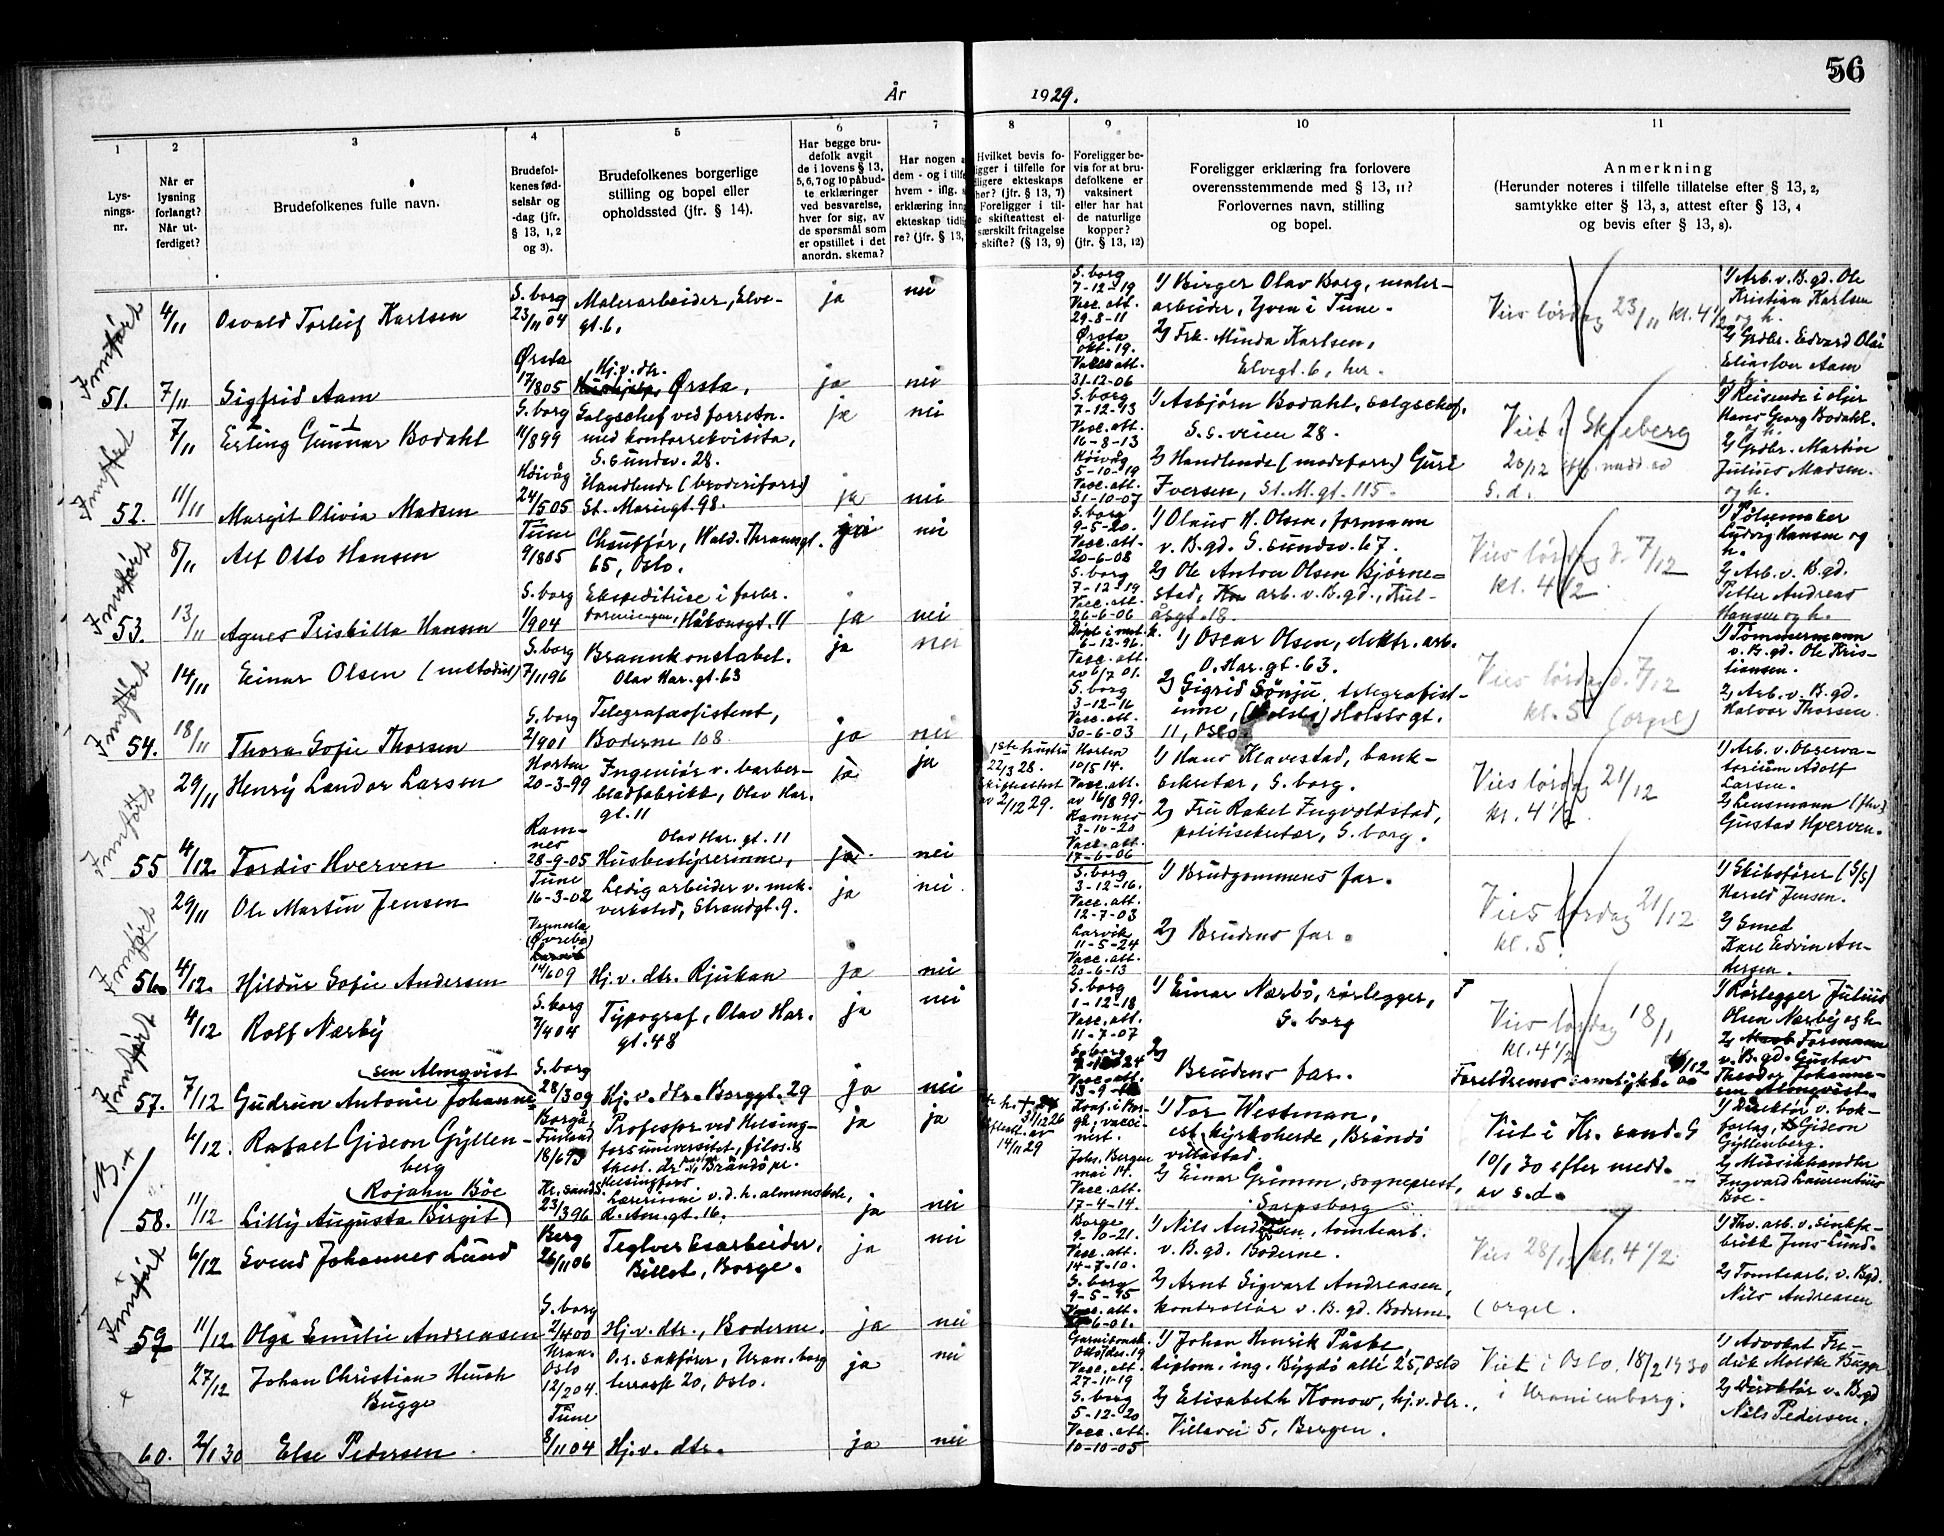 56
År 1929.
1
2
3
4
5
6
7
8
9
10
11
Lys-
nings-
nr.
Når er
lysning
forlangt?
Når ut-
ferdiget?
Brudefolkenes fulle navn.
Brudefol-
kenes fød-
selsår og
-dag (jfr.
§ 13, 1, 2
og 3).
Brudefolkenes borgerlige
stilling og bopel eller
opholdssted (jfr. § 14).
Har begge bru-
defolk avgit
de i lovens § 13,
5, 6, 7 og 10 påbud-
te erklæringer
ved besvarelse,
hver for sig, av
de spørsmål som
er opstillet i det
anordn. skema?
Har nogen a
dem - og i tilf
hvem - iflg. s
erklæring inng
ekteskap tidlig
re? (jfr. § 13,
Hvilket bevis fo-
ligger i tilfelle for
dligere ekteskaps
hør? (jfr. § 13, 7)
Foreligger i til-
le skifteattest el-
særskilt fritagelse
skifte? (§ 13, 9)
Foreligger be-
vis for at bru-
defolkene er
vaksinert
eller har hat
de naturlige
kopper?
(jfr. § 13, 12)
Foreligger erklæring fra forlovere
overensstemmende med § 13, 11?
Forlovernes navn, stilling
og bopel.
Anmerkning
(Herunder noteres i tilfelle tillatelse efter § 13, 2,
samtykke efter § 13, 3, attest efter § 13, 4
og bevis efter § 13, 8).
Innført
51.
4/11
Osvald Torleif Karlsen
S. borg
23/11 04
Malerarbeider, Elve-
gt. 6.
ja
nei
S. borg
7-12-19
Vacc. att.
29-8-11
1) Birger Olav Borg, maler-
arbeider, Yven i Tune.
Vies lørdag 23/11 kl. 4 1/2
1) Arb. v. B. gd. Ole
Kristian Karlsen
og h.
7/11
Sigfrid Aam
Ørsta
17/8 05
Hj. v. dtr.
Ørsta,
ja
nei
Ørsta
okt. 19.
Vacc. att.
31-12-06
2) Frk. Minda Karlsen,
Elvegt. 6, her.
2) Grdbr. Edvard Olai
Eliassen Aam
Innført
52.
7/11
Erling Gunnar Bodahl
S. borg
11/8 99
Salgschef ved forretn.
med kontorrekvisita,
S. sundsv. 28.
ja
nei
S. borg
7-12-13
Vacc. att.
16-8-13
1) Asbjørn Bodahl, salgschef,
S. s. veien 28.
Viet i Skjeberg
28/12 efter medd. av
s. d.
1) Reisende i oljer
Hans Georg Bodahl.
11/11
Margit Olivia Madsen
Høivåg
24/5 05
Handlende (broderiforr.)
St. Mariegt. 98.
ja
nei
Høivåg
5-10-19
Vacc. att.
31-10-07
2) Handlende (modeforr.) Guri
Iversen, St. M. gt. 115.
2) Grdbr. Martin
Julius Madsen.
og h.
Innført
53.
8/11
Alf Otto Hansen
Tune
9/8 05
Chauffør, Wald. Thranesgt.
65, Oslo.
nei
S. borg
9-5-20.
Vacc. att.
20-6-08
1) Olaus H. Olsen, formann
v. B. gd. S. sundsv. 67.
Vies lørdag d. 7/12
kl. 4 1/2
1) Pølsemaker
Ludvig Hansen og
h.
13/11
Agnes Priskilla Hansen
S. borg
1/9 04
Ekspeditrise i forbr.
foreningen, Håkonsgt. 11
ja
nei
S. borg
7-12-19
Vacc. att.
26-6-06
2) Ole Anton Olsen Bjørne-
stad, arb. v. B. gd., Kul-
åsgt. 18.
2) Arb. v. B. gd.
Petter Andreas
Hansen og h.
Innført
54.
14/11
Einar Olsen (metodist)
S. borg
7/11 96
Brannkonstabel.
Olav Har. gt. 63
ja
nei
Døpt i met. k.
6-12-96.
Vacc. att.
av 6/7 01.
1) Oscar Olsen, elektr. arb.
O. Har. gt. 63.
Vies lørdag d. 7/12
kl. 5 (orgel)
1) Tømmermann
v. B. gd. Ole Kris-
tiansen.
18/11
Thora Sofie Thorsen
S. borg
2/9 01
Telegrafassistent,
Boderne 108
ja
nei
S. borg
3-12-16
Vacc. att.
30-6-03
2) Sigrid Sönju, telegrafist-
inne, Holsts gt.
11, Oslo.
2) Arb. v. B. gd.
Halvor Thorsen
Innført
55
29/11
Henry Landor Larsen
Horten
20-3-99
Ingeniør v. barber-
bladfabrikk, Olav Har.
gt. 11
ja
ja
1ste hustru
22/3 28.
Skifteattest
av 2/12 29.
Horten
10/5 14.
Vacc. att.
av 16/8 99.
1) Hans Klavestad, bank-
sekretær, S. borg.
Vies lørdag 21/12
kl. 4 1/2
1) Arb. v. Observa-
torium Adolf
Larsen.
4/12
Tordis Hverven
Ram-
nes
28-9-05
Olav Har. gt. 11
Husbestyrerinne,
ja.
nei
Ramnes
3-10-20
Vacc. att.
17-6-06
2) Fru Rakel Ingvoldstad,
politisekretær, S. borg.
2) Lensmann (fhv.)
Gustav Hverven.
Innført
56.
29/11
Ole Martin Jensen
Tune
16-3-02
Ledig arbeider v. mek.
verksted, Strandgt. 9.
ja
nei
S. borg
3-12-16.
Vacc. att.
12-7-03
1) Brudgommens far.
Vies lørdag 21/12
kl. 5.
1) Skibsfører (S/S)
Harald Jensen.
4/12.
Hildur Sofie Andersen
Vennesla
(Øvrebø)
14/6 09
Hj. v. dtr. Rjukan
ja
nei
Larvik
11-5-24
Vacc. att.
20-6-13
2) Brudens far.
2) Smed
Karl Edvin An-
dersen.
Innført
57.
4/12
Rolf Nærby
S. borg
7/4 04
Typograf, Olav Har.
gt. 48
ja
nei
S. borg
1-12-18
Vacc. att.
11-7-07
1) Einar Nærbö, rørlegger,
S. borg
Vies lørdag 18/1
kl. 4 1/2
1) Rørlegger Julius
Olsen Nærby og h
7/12
Gudrun Antonie Johanne-
sen Almqvist
S. borg
28/3 09
Hj. v. dtr. Borggt. 29
ja
nei
S. borg
Vacc. att.
2)
Brudens far.
Foreldrenes samtykke av
2) Formann
v. B. gd. Gustav
Theodor Johanne-
sen Almqvist.
NB. +
58.
6/12.
Rafael Gideon Gyllen-
berg
Borgå,
Finland
18/6 93
Professor ved Helsing-
forsuniversitet, filos. &
theol. dr. Brändö pr.
Helsingfors
ja
ja
31/12 26
Skifteatt. av
14/11 29
Konf. i Bor-
gå, vacci-
nert.
1) Tor Westman,
est kyrkoherde, Brändö
villastad.
Viet i Kr. sand. S
10/1 30 efter medd.
av s. d.
1) Direktør v. bok-
forlag, Gideon
Gyllenberg.
11/12
Lilly Augusta Birgit
Rojahn Böe
Kr. sand S.
23/3 96
Lærerinne v. d. h. almenskole,
R. Am. gt. 16.
ja
nei
Johs. Bergen
mai 14.
Vacc. att.
17-4-14.
2) Einar Grimm, sogneprest,
Sarpsborg
2) Musikkhandler
Ingvard Laurentius
Böe.
Innført
59
6/12
Svend Johannes Lund
Berg
26/11 06
Teglverksarbeider,
Billet, Borge.
ja
nei
Borge
9-10-21.
Vacc. att.
14-7-10.
1) Nils Andersen, tomtearb.
v. B. gd. Boderne.
Vies 28/12 kl. 4 1/2
(orgel.
1) Fhv. arb. v. sinkfa-
brikk Jens Lund.
11/12
Olga Emilie Andreasen
S. borg
2/4 00
Hj. v. dtr., Boderne.
ja
nei
S. borg
9-5-15
Vacc. att.
2) Arnt Sigvart Andreasen,
kontrollör v. B. gd. Boderne.
2) Tomtearb. v. Bgd.
Nils Andreasen
+
60.
27/12
Johan Christian Heuch
Bugge
Uran.
Oslo
12/2 04.
O. r. sakfører, Uran. borg
terrasse 20, Oslo.
ja
nei
Garnisonsk.
Oslo/des. 19
Vacc. att.
27-11-19
1) Johan Henrik Paske,
diplom. ing. Bygdö allé 25, Oslo
Viet i Oslo, 18/2 1930
i Uranienborg.
1) Advokat Fre-
drik Moltke Bugge
2/1 30
Else Pedersen
Tune
8/11 04
Hj. v. dtr.
ja
nei
S. borg
5-12-20
Vacc. att.
10-10-05
2) Elisabeth Konow, hj. v. dtr.,
Villavei 5, Bergen.
2) Direktør v. B. gd
Nils Pedersen.